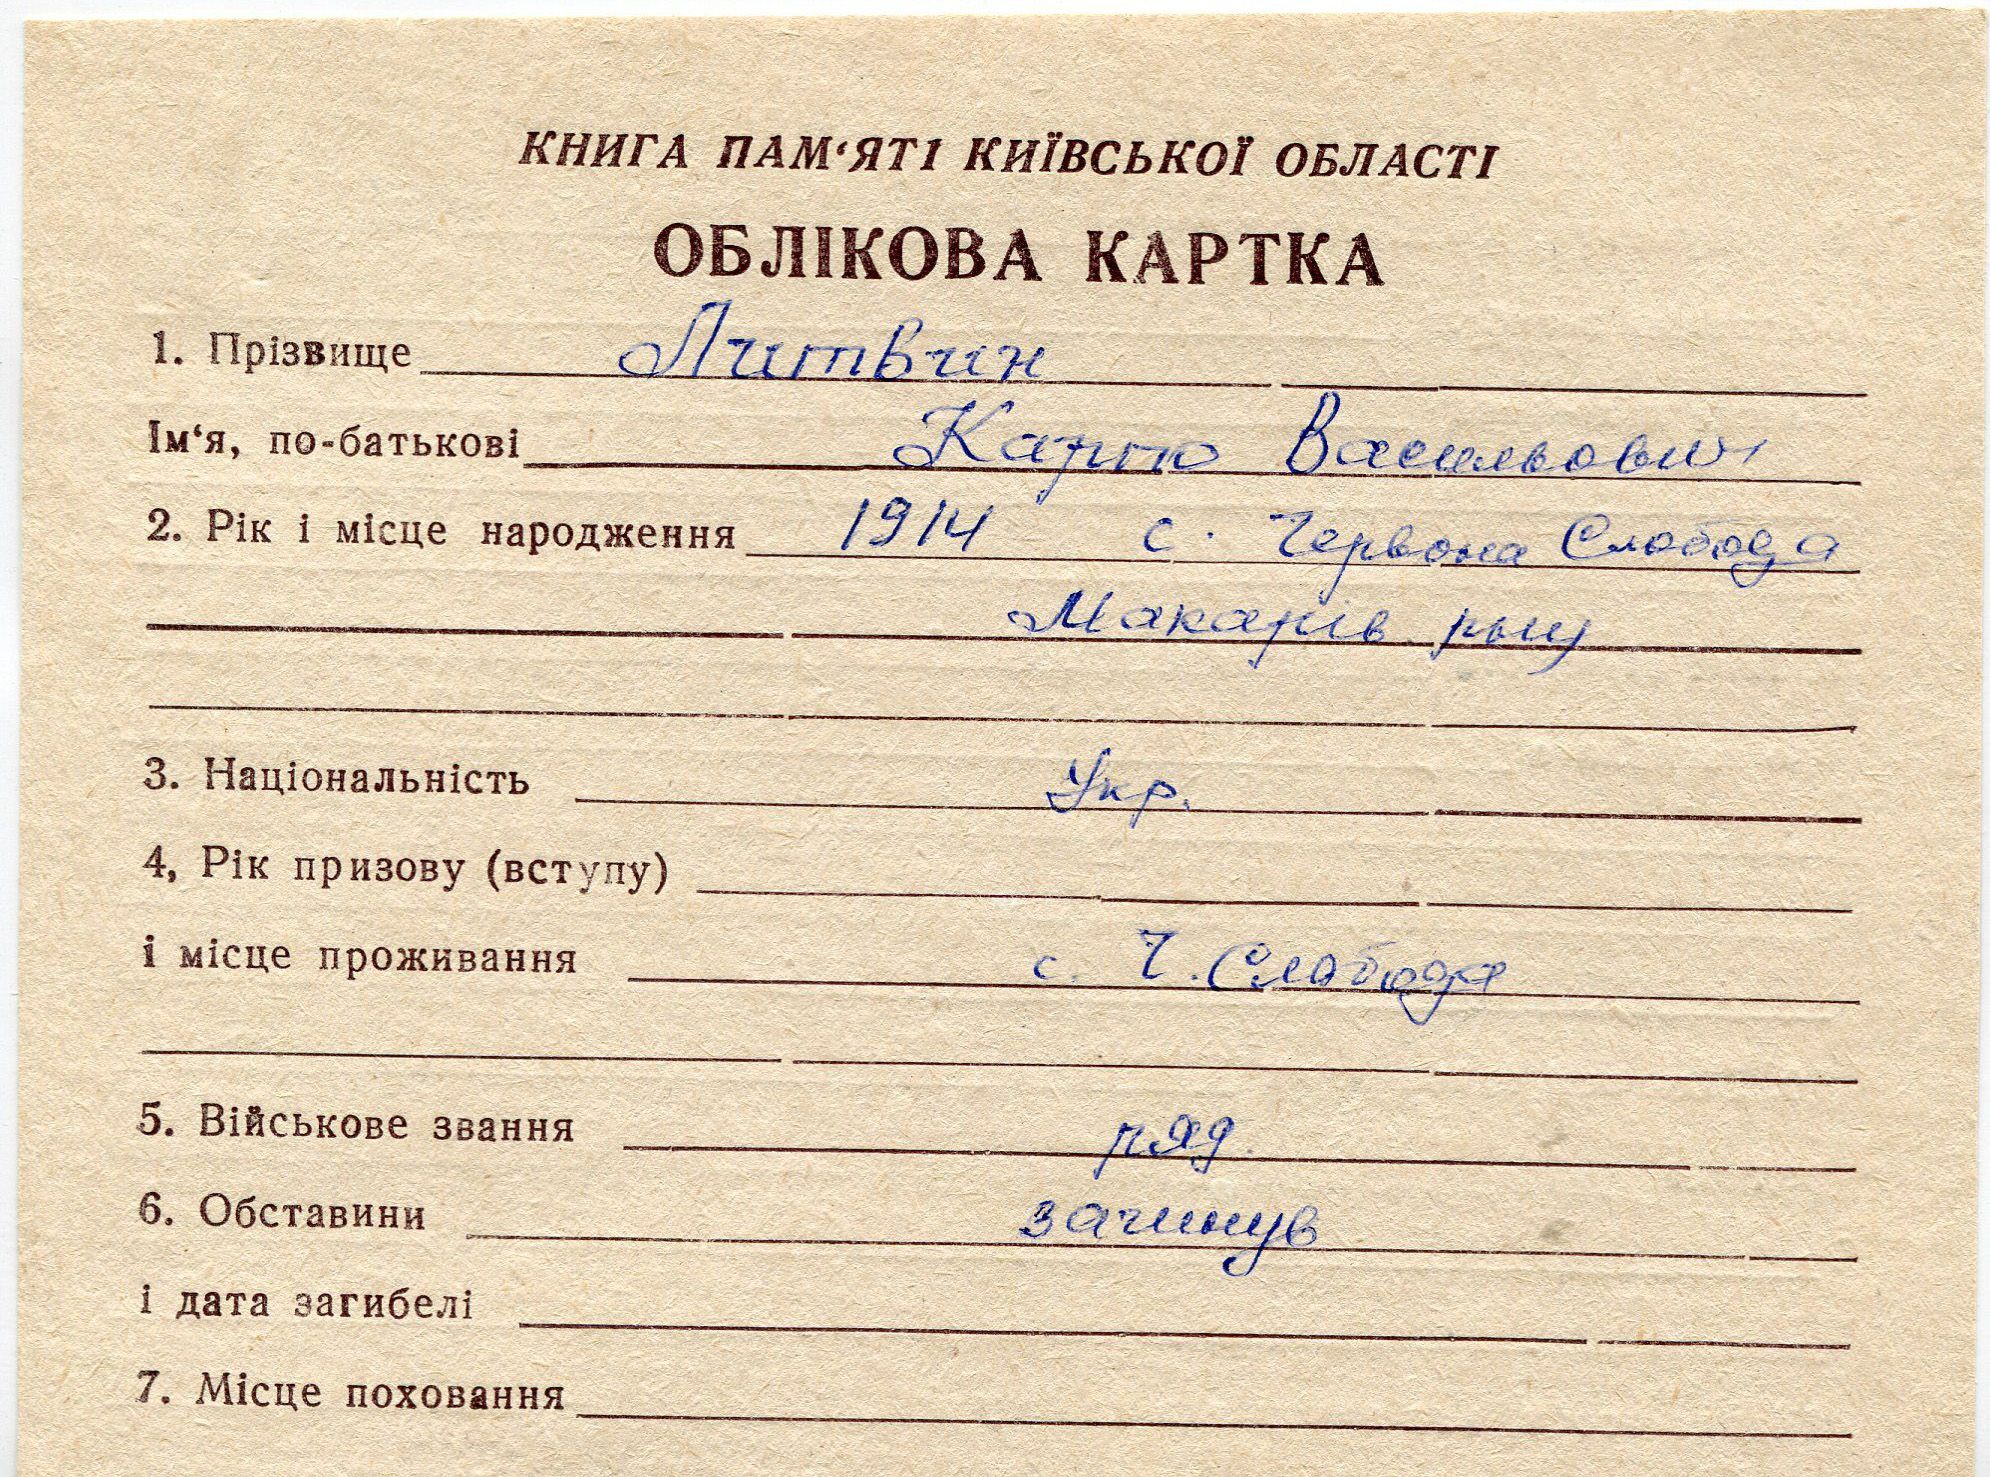 КНИГА ПАМ‘ЯТІ КИЇВСЬКОЇ ОБЛАСТІ
ОБЛІКОВА КАРТКА
1. Прізвище Литвин
Ім‘я, по-батькові Карпо Васильович
2. Рік і місце народження 1914 с. Червона Слобода
Макарів
3. Національність Укр.
4, Рік призову (вступу)
і місце проживання с. Ч. Слобода
5. Військове звання ряд.
6. Обставини загинув
і дата загибелі
7. Місце поховання